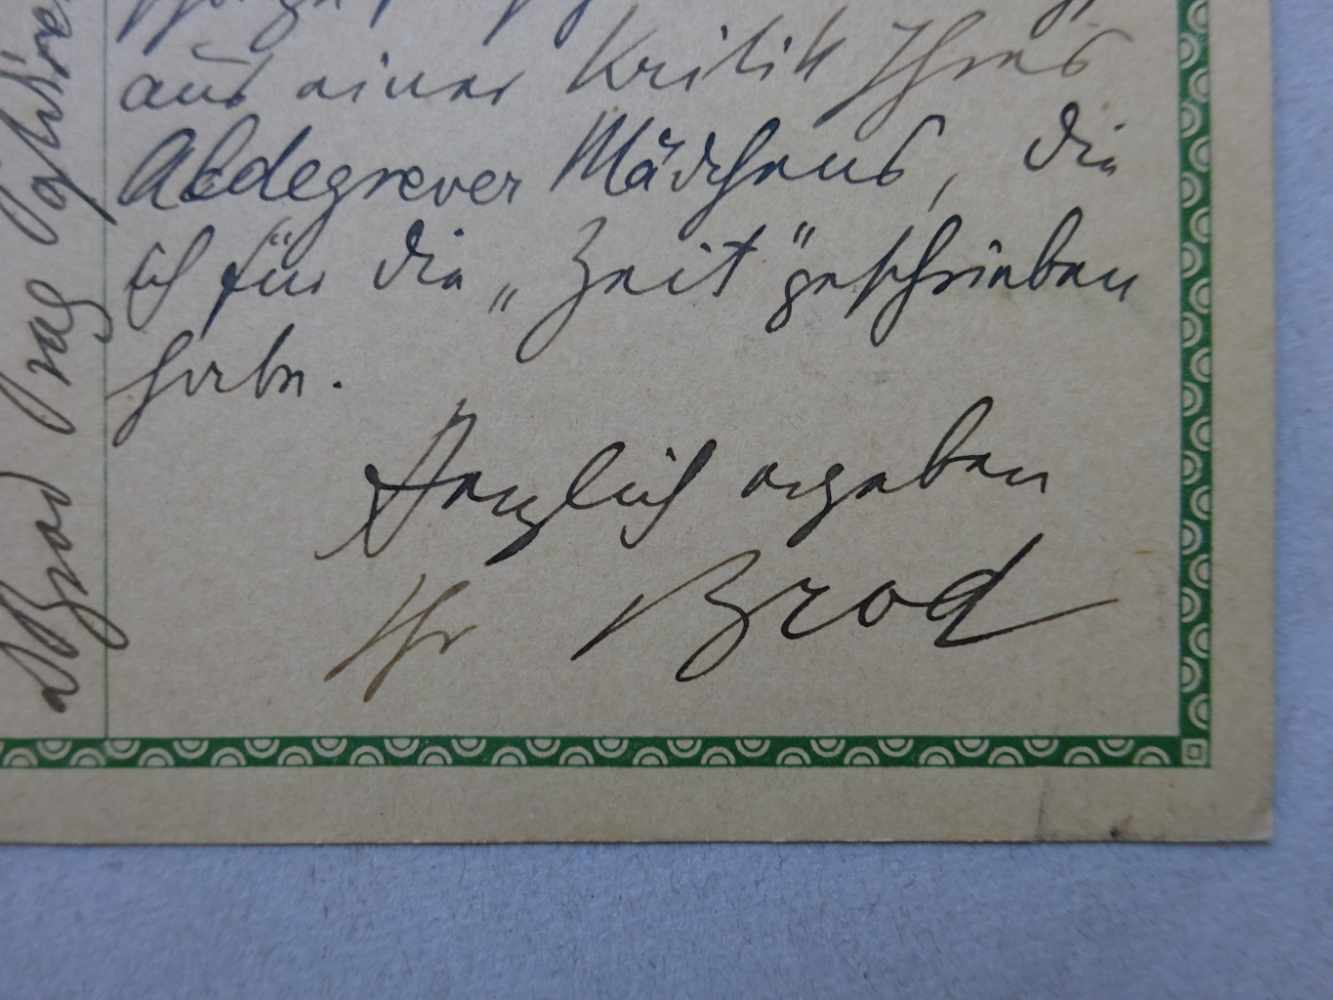 aus einer Kritik Ihres
Aldegrever Mädchens, die
ich für die „Zeit" geschrieben
habe.
Herzlich ergeben
Ihr Brod
Brod Prag